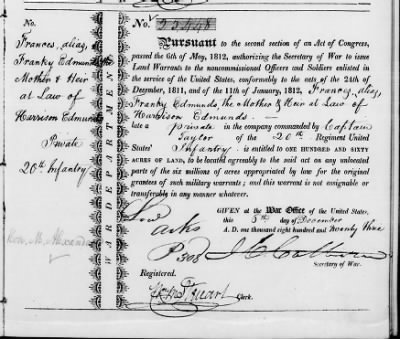 No.
Frances, alias,
Franky Edmunds the
Mother & Heir
at Law of
Harrison Edmunds
Private
20th Infantry
Hon. M. Alexander
WAR DEPARTMENT
No. 22448
Pursuant to the second section of an Act of Congress,
passed the 6th of May, 1812, authorizing the Secretary of War to issue
Land Warrants to the noncommissioned Officers and Soldiers enlisted in
the service of the United States, conformably to the acts of the 24th of
December, 1811, and of the 11th of January, 1812, Frances, alias,
Franky Edmunds, the Mother & Heir at Law of
Harrison Edmunds
late a private in the company commanded by Captain
Taylor of the 20th Regiment United
States' Infantry is entitled to ONE HUNDRED AND SIXTY
ACRES OF LAND, to be located agreeably to the said act on any unlocated
parts of the six millions of acres appropriated by law for the original
grantees of such military warrants; and this warrant is not assignable or
transferable in any manner whatever.
GIVEN at the War Office of the United States,
this 8th day of December
A. D. one thousand eight hundred and twenty three
P 308
J C Calhoun
Secretary of War.
Registered.
Stuart Clerk.